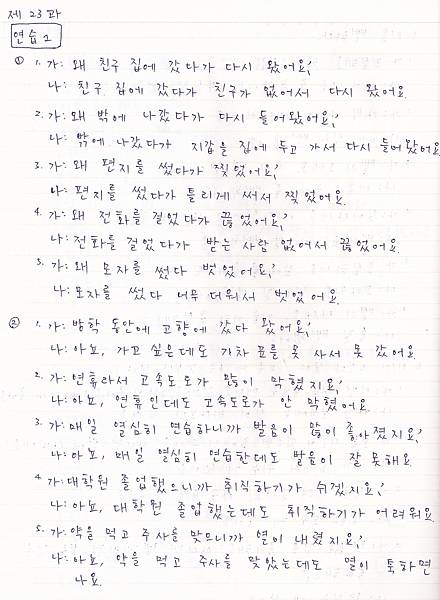 제 23 과
연습 2
① 1. 가: 왜 친구 집에 갔다가 다시 왔어요?
나: 친구 집에 갔다가 친구가 없어서 다시 왔어요.
2. 가: 왜 밖에 나갔다가 다시 들어왔어요?
나: 밖에 나갔다가 지갑을 집에 두고 가서 다시 들어왔어요
3. 가: 왜 편지를 썼다가 찢었어요?
나: 편지를 썼다가 틀리게 써서 찢었어요.
4. 가: 왜 전화를 걸었다가 끊었어요?
나: 전화를 걸었다가 받는 사람 없어서 끊었어요.
5. 가: 왜 모자를 썼다 벗었어요?
나: 모자를 썼다 너무 더워서 벗었어요.
② 1. 가: 방학 동안에 고향에 갔다 왔어요?
나: 아뇨, 가고 싶은데도 기차 표를 못 사서 못 갔어요.
2. 가: 연휴라서 고속도도가 많이 막혔지요?
나: 아뇨, 연휴인데도 고속도로가 안 막혔어요.
3. 가: 매일 열심히 연습하니까 발음이 많이 좋아졌지요?
나: 아뇨, 매일 열심히 연습한데도 발음이 잘 못해요
4. 가: 대학원 졸업했으니까 취직하기가 쉬겠지요?
나: 아뇨, 대학원 졸업했는데도 취직하기가 어려워요.
5. 가: 약을 먹고 주사를 맞으니까 열이 내렸지요?
나: 아뇨, 약을 먹고 주사를 맞았는데도 열이 툭하면
나요.